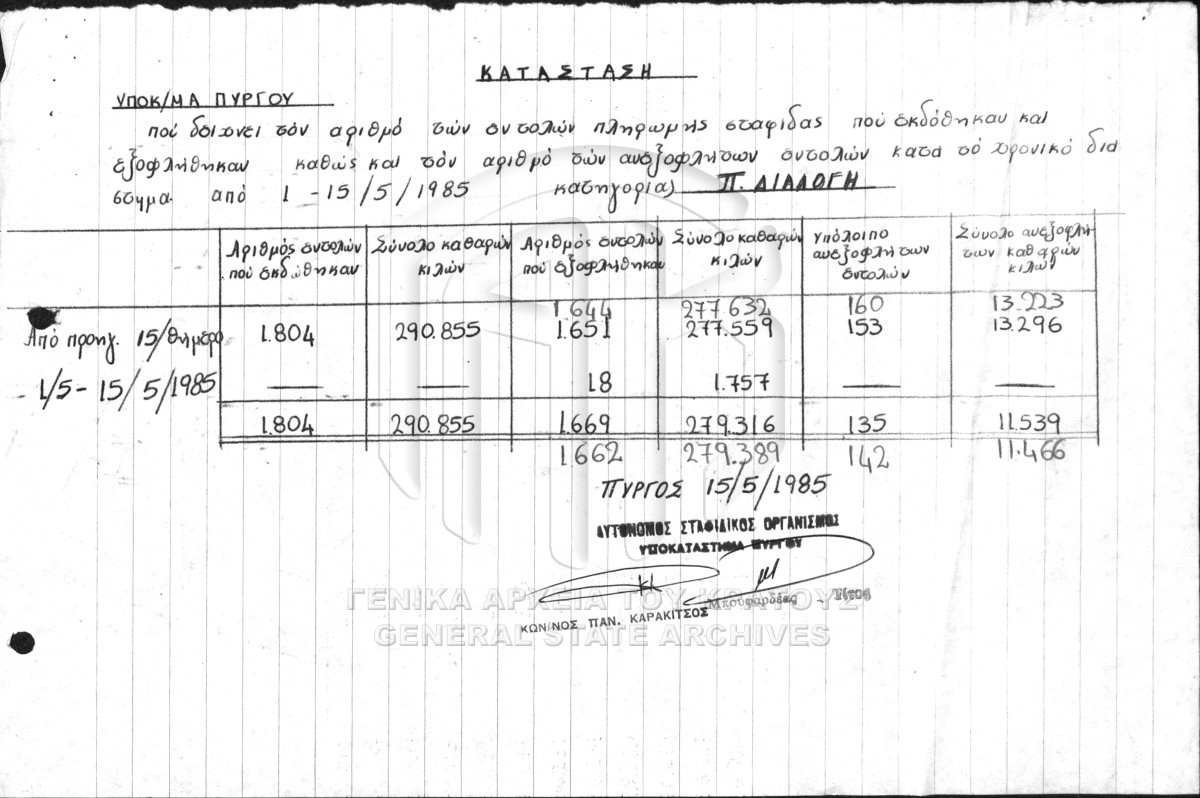 ΚΑΤΑΣΤΑΣΗ
ΥΠΟΚ/ΜΑ ΠΥΡΓΟΥ
πού δείχνει τόν αριθμό τών εντολών πληρωμής σταφίδας πού εκδόθηκαν και
εξοφλήθηκαν καθώς και τόν αριθμό τών ανεξοφλήτων εντολών κατά τό χρονικό διά
στημα από 1 - 15/5/1985 κατηγορία) Π. ΔΙΑΛΟΓΗ
Αριθμός εντολών Σύνολο καθαρών Αριθμός εντολών Σύνολο καθαρών Υπόλοιπο Σύνολο ανεξοφλή-
πού εκδόθηκαν κιλών πού εξοφλήθηκαν κιλών ανεξοφλήτων των καθαρών
εντολών κιλών
1.644 277.632 160 13.223
Από προηγ. 15/θήμερο 1.804 290.855 1.651 277.559 153 13.296
- 1/5 - 15/5/1985 — — 18 1.757 — —
1.804 290.855 1.669 279.316 135 11.539
1662 279.389 142 11.466
ΠΥΡΓΟΣ 15/5/1985
ΑΥΤΟΝΟΜΟΣ ΣΤΑΦΙΔΙΚΟΣ ΟΡΓΑΝΙΣΜΟΣ
ΥΠΟΚΑΤΑΣΤΗΜΑ ΠΥΡΓΟΥ
ΚΩΝ/ΝΟΣ ΠΑΝ. ΚΑΡΑΚΙΤΣΟΣ Μπουφαρδέας
ΓΕΝΙΚΑ ΑΡΧΕΙΑ ΤΟΥ ΚΡΑΤΟΥΣ
GENERAL STATE ARCHIVES